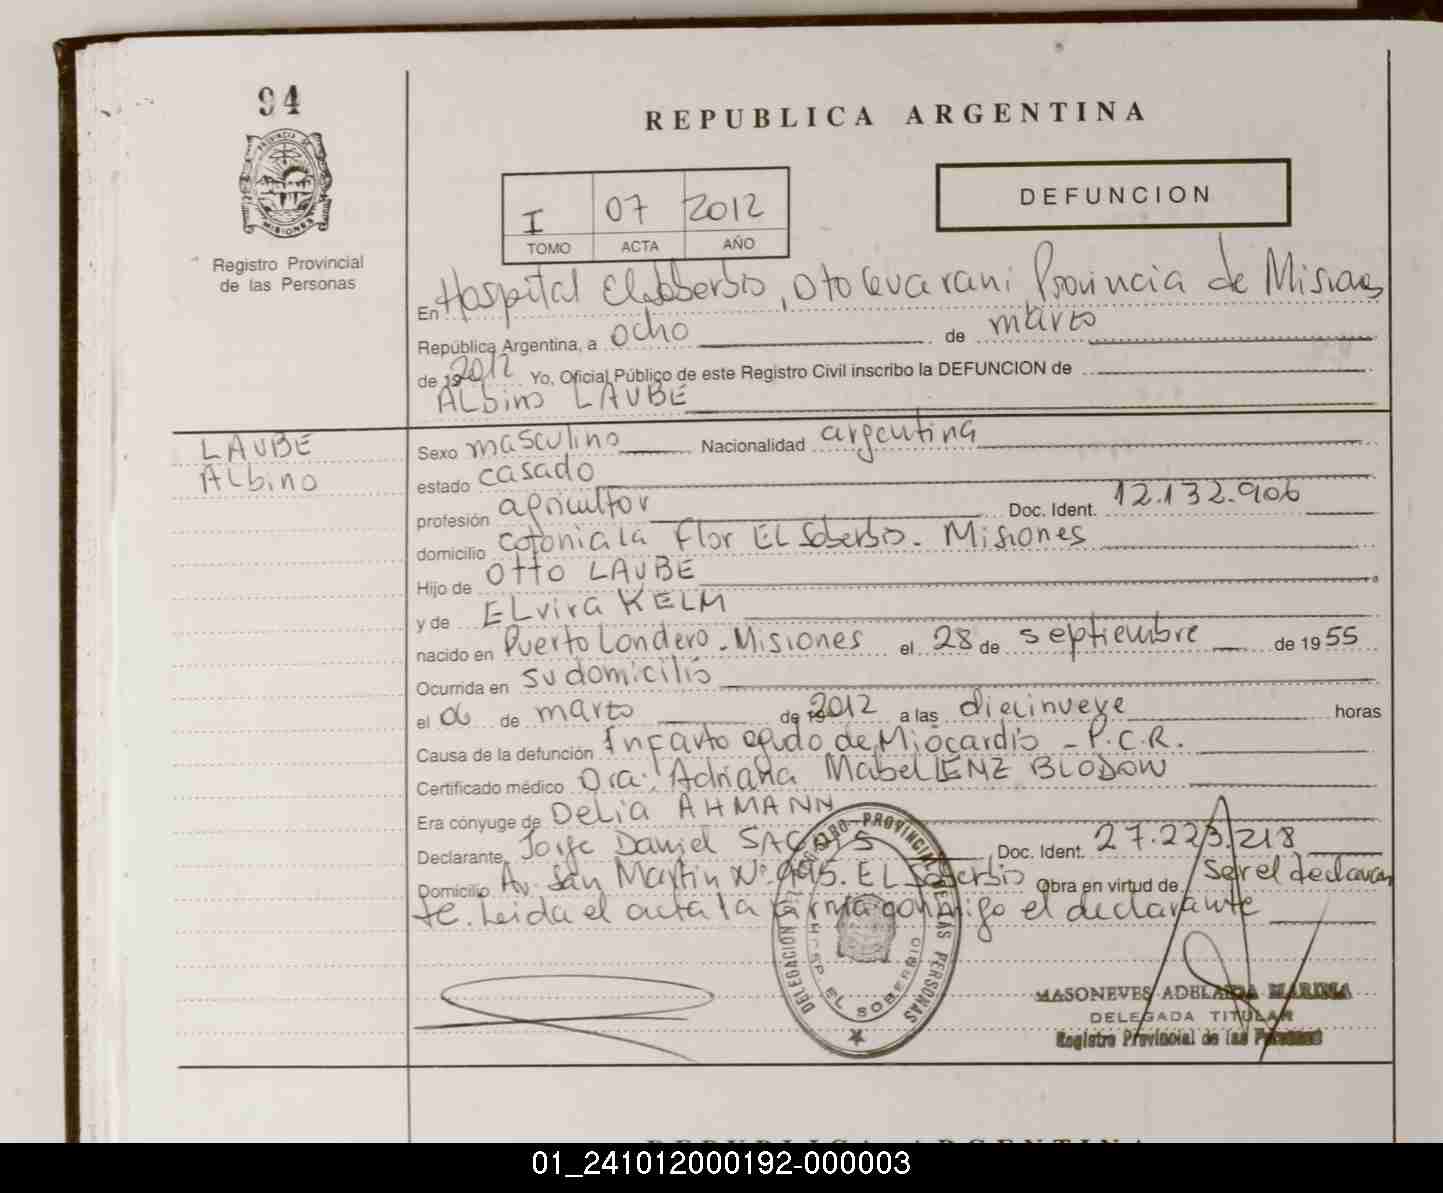 94
REPUBLICA ARGENTINA
PROVINCIA DE
MISIONES
Registro Provincial
de las Personas
I 07 2012
TOMO ACTA AÑO
DEFUNCION
En Hospital El Soberbio, Dto Guarani Provincia de Misiones
República Argentina, a ocho de marzo
de 19 2012 Yo, Oficial Público de este Registro Civil inscribo la DEFUNCION de
Albino LAUBE
LAUBE
Albino
Sexo masculino Nacionalidad argentina
estado casado
profesión agricultor Doc. Ident. 12.132.906
domicilio Colonia La Flor EL Soberbio. Misiones
Hijo de Otto LAUBE
y de ELvira KELM
nacido en Puerto Londero. Misiones el 28 de septiembre de 1955
Ocurrida en su domicilio
el 06 de marzo de 19 2012 a las diecinueve horas
Causa de la defunción Infarto agudo de Miocardio - P.C.R.
Certificado médico Dra. Adriana Mabel LENZ BLODOW
Era cónyuge de Delia AHMANN
Declarante Jorge Daniel Doc. Ident. 27.223.218
Domicilio Av. San Martin N° 995. EL Soberbio Obra en virtud de ser el declaran
te. Leida el acta la firma conmigo el declarante
REGISTRO PROVINCIAL DE LAS PERSONAS
DELEGACION
HOSP EL SOBERBIO
MASONEVES ADELAIDA MARINA
DELEGADA TITULAR
Registro Provincial de las Personas
REPUBLICA ARGENTINA
01_241012000192-000003